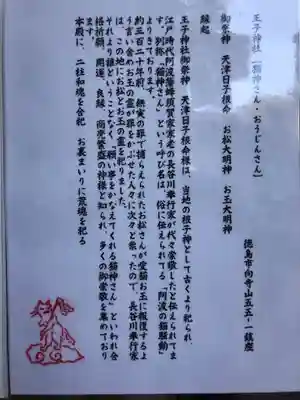 王子神社「猫神さん・おうじんさん」
徳島市向寺山五五ー一鎮座
御祭神　天津日子根命　お松大明神　お玉大明神
縁起
王子神社御祭神　天津日子根命様は、当地の根子神として古くより祀られ、
江戸時代阿波蜂須賀家家老の長谷川奉行家が代々崇敬したと伝えられてま
す。別称「猫神さん」という呼び名は、俗に伝えられてる「阿波の猫騒動」
よりきております。
約三百二十年前、無実の罪で捕らえられたお松さんが愛猫お玉に報復するよ
う言い含めお玉の霊が罪をかぶせた人々に次々と祟ったので、長谷川奉行家
は、この地にお松とお玉の霊を祀りました。
それより誰ということなく「願い事をかなえてくれる猫神さん」といわれ合
格祈願、開運、良縁、商売繁盛の神様と知られ、多くの御崇敬を集めており
ます。
本殿に、二柱和魂を合祀　お裏まいりに荒魂を祀る